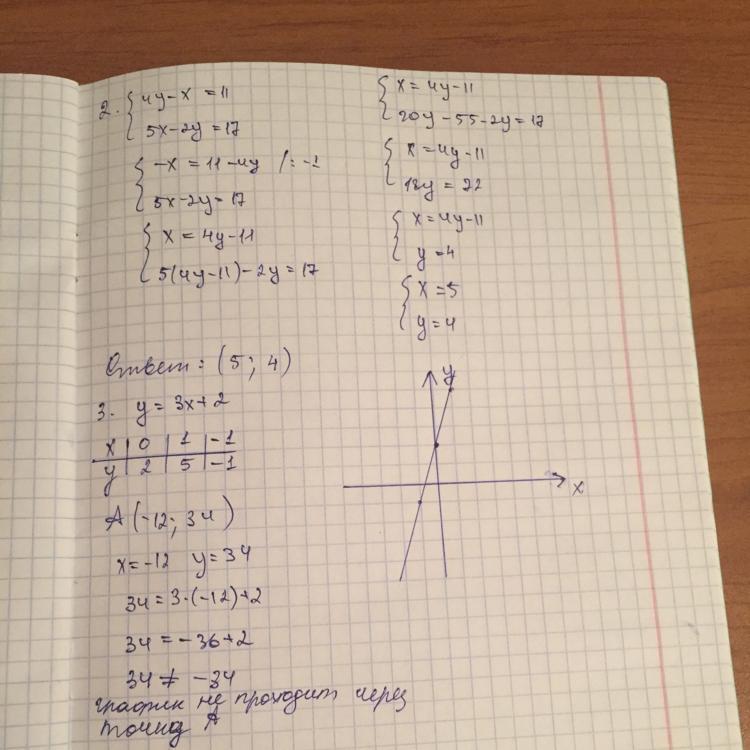 2. { 4y-x = 11
5x-2y = 17
{ -x = 11-4y /: -1
5x-2y = 17
{ x = 4y-11
5(4y-11)-2y = 17
{ x = 4y-11
20y-55-2y = 17
{ x = 4y-11
18y = 22
{ x = 4y-11
y = 4
{ x = 5
y = 4
Ответ: (5; 4)
3. y = 3x+2
x | 0 | 1 | -1
y | 2 | 5 | -1
y
x
A (-12; 34)
x = -12 y = 34
34 = 3·(-12)+2
34 = -36+2
34 ≠ -34
график не проходит через
точку A